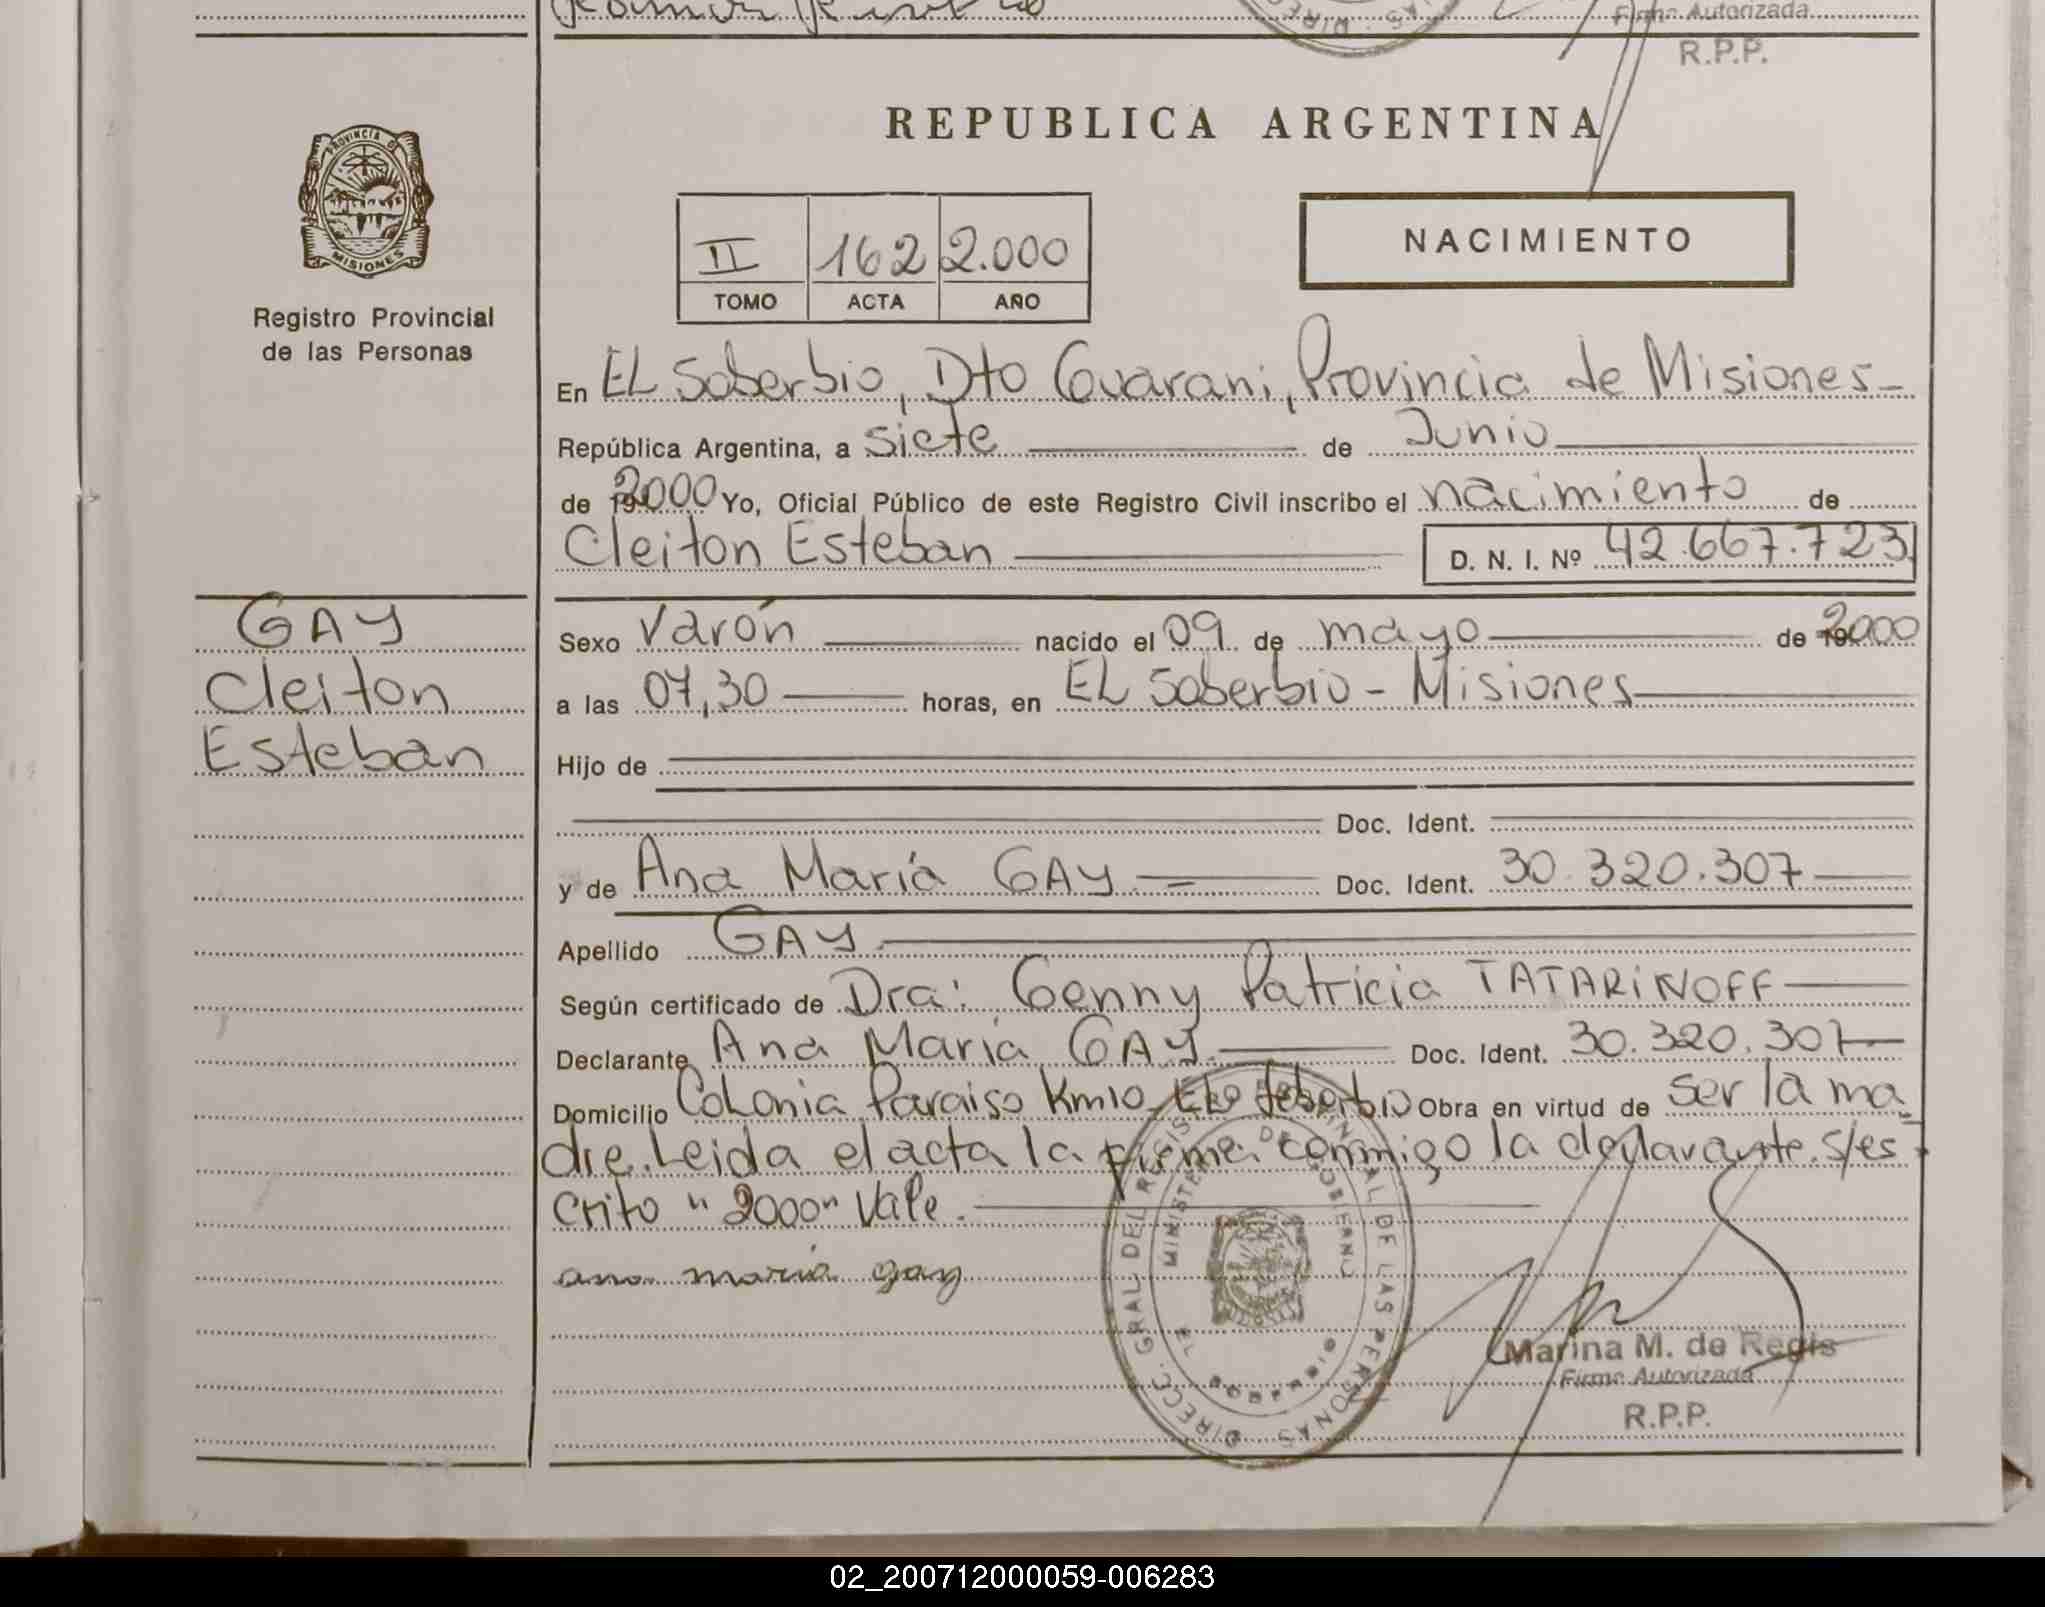 Firma Autorizada
R.P.P.
PROVINCIA DE
MISIONES
Registro Provincial
de las Personas
REPUBLICA ARGENTINA
II 162 2.000
TOMO ACTA AÑO
NACIMIENTO
En EL Soberbio, Dto Guarani, Provincia de Misiones-
República Argentina, a siete de Junio
de 2000 Yo, Oficial Público de este Registro Civil inscribo el nacimiento de
Cleiton Esteban D. N. I. Nº 42.667.723
GAY
Cleiton
Esteban
Sexo Varón nacido el 09 de mayo de 2000
a las 07,30 horas, en EL Soberbio - Misiones
Hijo de
Doc. Ident.
y de Ana María GAY Doc. Ident. 30.320.307
Apellido GAY
Según certificado de Dra: Genny Patricia TATARINOFF
Declarante Ana María GAY Doc. Ident. 30.320.307
Domicilio Colonia Paraiso Km10 EL Soberbio Obra en virtud de ser la ma
dre. Leida el acta la firma conmigo la declarante. s/es-
crito "2000" Vale.
ana maria gay
DIRECC. GRAL DEL REGIST PROVINCIAL DE LAS PERSONAS
MINISTERIO DE GOBIERNO
EL SOBERBIO
Marina M. de Regis
Firma Autorizada
R.P.P.
02_200712000059-006283